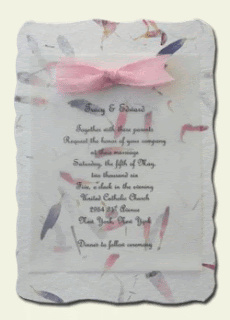 Tracy & Edward
Together with their parents
Request the honor of your company
at their marriage
Saturday, the fifth of May,
two thousand six
Five, o'clock in the evening
United Catholic Church
2954 Avenue
New York, New York
Dinner to follow ceremony